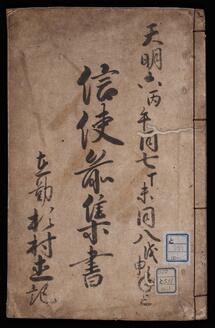 天明六丙午同七丁未同八戊申迄
信使前集書
立勤杉村直記